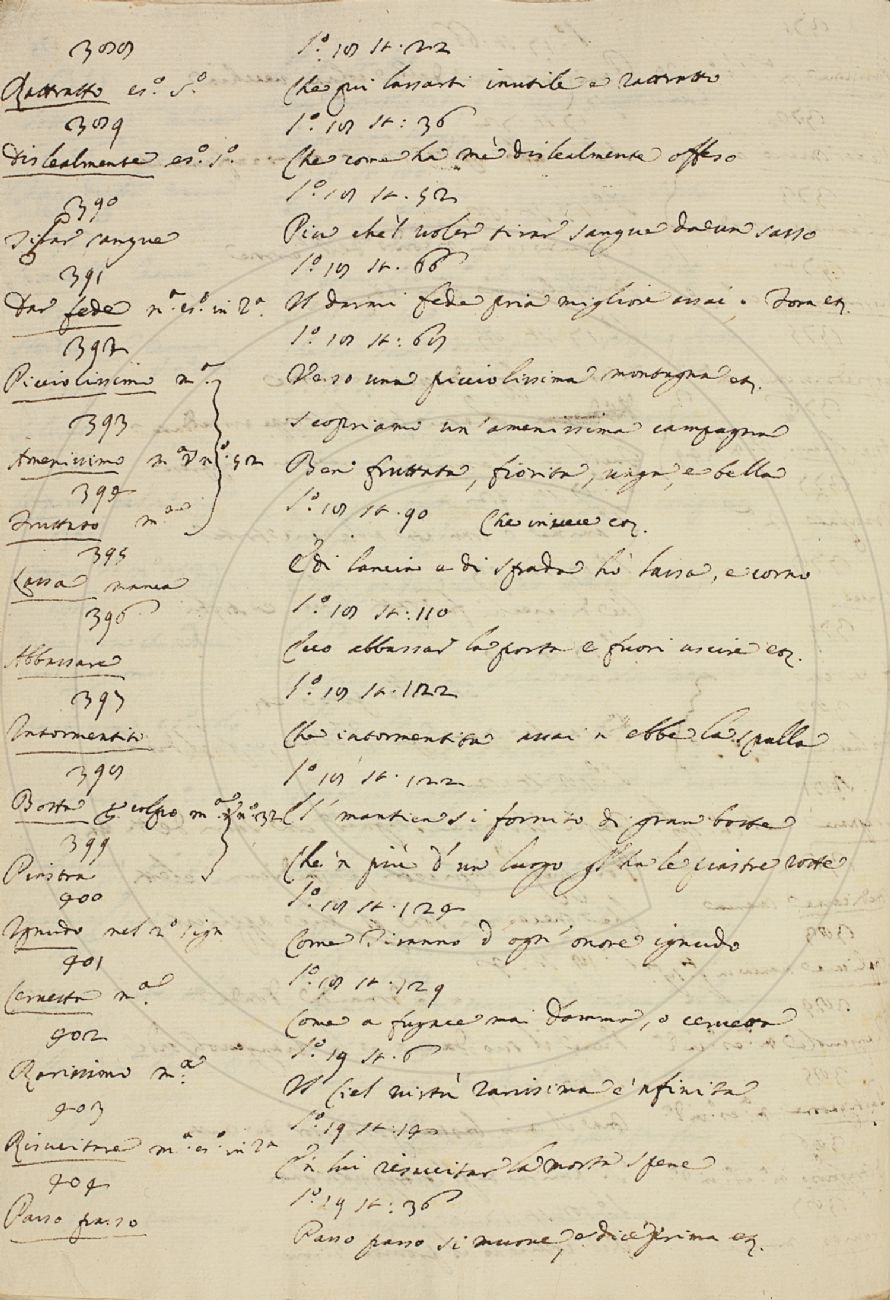 388
1.º 18 st. 22
Rattratto es.º 5.º
Che qui lassarti inutile e rattratto
389
1.º 18 st: 36
Dislealmente es.º 1.º
Che come ha me dislealmente offeso
390
1.º 18 st. 52
sangue
Piu che'l voler tirar sangue da un sasso
391
1.º 18 st. 66
Dar fede n.ª es.º in 2.ª
Il darmi fede pria migliore assai, Fora etc.
392
1.º 18 st: 68
Picciolissimo m.ª
Verso una picciolissima montagna etc.
393
Scopriamo un'amenissima campagna
Amenissimo m.ª n.º 52
Ben fruttata, fiorita, vaga, e bella
394
1.º 18 st. 90
Fruttato m.ª
Che invece etc.
395
Lassa manca
E di lancia e di spada hò lassa, e corno
396
1.º 18 st: 110
Abbassare
abbassar la porta e fuori uscire etc.
397
1.º 18 st. 122
Intormentito
Che intormentita assai n'ebbe la spalla
398
1.º 18 st. 122
Botta colpo m.ª n.º 32
di gran botte
399
Che'n più d'un luogo gl'ha le piastre rotte
Piastra
400
1.º 18 st. 124
Ignudo nel 2.º sign
Come Tiranno d'ogn'onore ignudo
401
1.º 18 st. 129
Cervetta m.ª
Come a fugace mai Damma, o cervetta
402
1.º 19 st. 6
Rarissimo m.ª
Il Ciel virtù rarissima e'nfinita
403
1.º 19 st. 14
Risuscitare m.ª es.º in 2.ª
In lui risuscitar la morta spene
404
1.º 19 st: 36
Passo passo
Passo passo si muove, e dice prima etc.